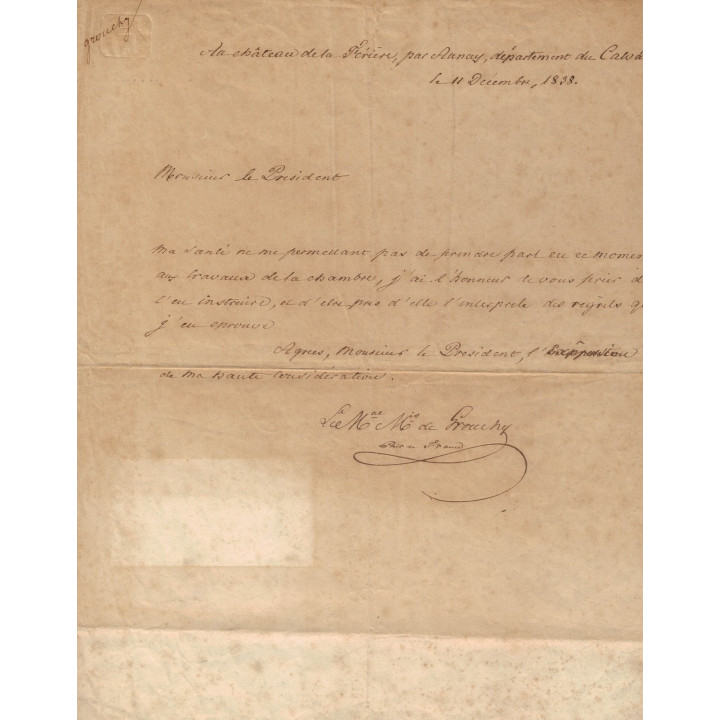 grouchy
Au château de la Férière, par Aunay, département du Calvad
le 11 Décembre, 1838.
Monsieur le President
Ma santé ne me permettant pas de prendre part en ce momen
aux travaux de la chambre, j'ai l'honneur de vous prier d
l'en instruire, et d'etre près d'elle l'interprete des regrets q
j'en eprouve
Agrées, Monsieur le President, l'expression
de ma haute considération.
Le Mal Mis de Grouchy
Pair de France